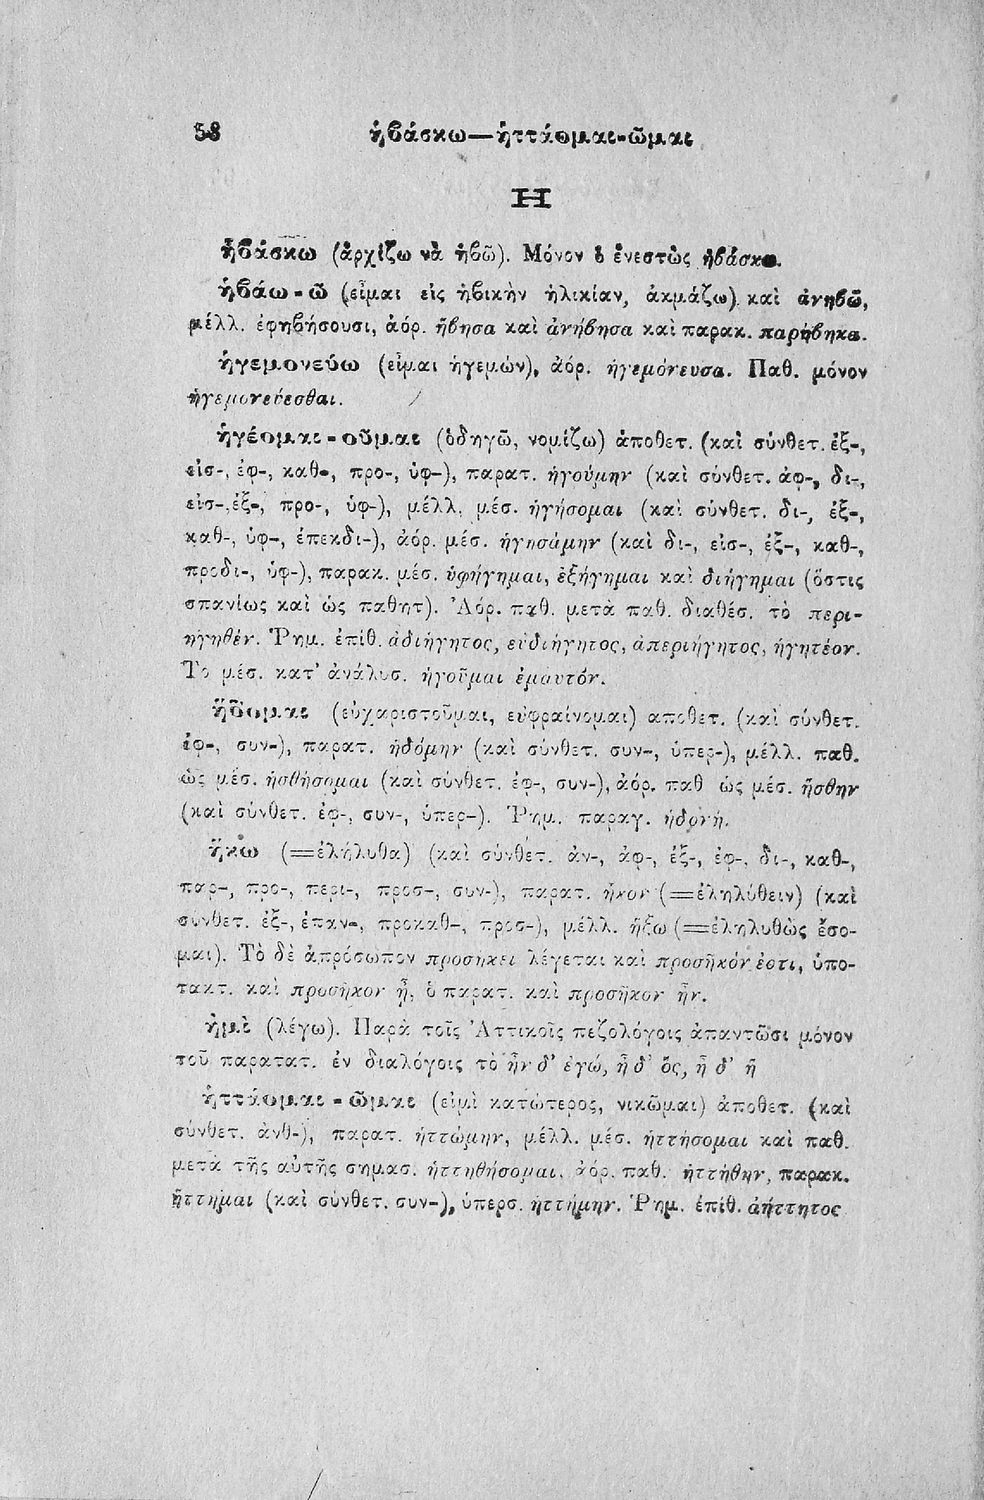 58 ἡβάσκω—ἡττάομαι-ῶμαι
Η
ἡβάσκω (ἀρχίζω νὰ ἡβῶ). Μόνον ὁ ἐνεστὼς ἡβάσκω.
ἡβάω-ῶ (εἶμαι εἰς ἡβικὴν ἡλικίαν, ἀκμάζω) καὶ ἀνηβῶ,
μέλλ. ἐφηβήσουσι, ἀόρ. ἥβησα καὶ ἀνήβησα καὶ παρακ. παρήβηκα.
ἡγεμονεύω (εἶμαι ἡγεμών), ἀόρ. ἡγεμόνευσα. Παθ. μόνον
ἡγεμονεύεσθαι.
ἡγέομαι-οῦμαι (ὁδηγῶ, νομίζω) ἀποθετ. (καὶ σύνθετ. ἐξ-,
εἰσ-, ἐφ-, καθ-, προ-, ὑφ-), παρατ. ἡγούμην (καὶ σύνθετ. ἀφ-, δι-,
εἰσ-, ἐξ-, προ-, ὑφ-), μέλλ. μέσ. ἡγήσομαι (καὶ σύνθετ. δι-, ἐξ-,
καθ-, ὑφ-, ἐπεκδι-), ἀόρ. μέσ. ἡγησάμην (καὶ δι-, εἰσ-, ἐξ-, καθ-,
προδι-, ὑφ-), παρακ. μέσ. ὑφήγημαι, ἐξήγημαι καὶ διήγημαι (ὅστις
σπανίως καὶ ὡς παθητ). Ἀόρ. παθ. μετὰ παθ. διαθέσ. τὸ περι-
ηγηθέν. Ῥημ. ἐπίθ. ἀδιήγητος, εὐδιήγητος, ἀπεριήγητος, ἡγητέον.
Τὸ μέσ. κατ' ἀνάλυσ. ἡγοῦμαι ἐμαυτόν.
ἥδομαι (εὐχαριστοῦμαι, εὐφραίνομαι) αποθετ. (καὶ σύνθετ.
ἐφ-, συν-), παρατ. ἡδόμην (καὶ σύνθετ. συν-, ὑπερ-), μέλλ. παθ.
ὡς μέσ. ἡσθήσομαι (καὶ σύνθετ. ἐφ-, συν-), ἀόρ. παθ ὡς μέσ. ἥσθην
(καὶ σύνθετ. ἐφ-, συν-, ὑπερ-). Ῥημ. παραγ. ἡδονή.
ἥκω (=ἐλήλυθα) (καὶ σύνθετ. ἀν-, ἀφ-, ἐξ-, ἐφ-, δι-, καθ-,
παρ-, προ-, περι-, προσ-, συν-), παρατ. ἧκον (=ἐληλύθειν) (καὶ
σύνθετ. ἐξ-, ἐπαν-, προκαθ-, προσ-), μέλλ. ἥξω (=ἐληλυθὼς ἔσο-
μαι). Τὸ δὲ ἀπρόσωπον προσήκει λέγεται καὶ προσῆκόν ἐστι, ὑπο-
τακτ. καὶ προσῆκον ᾖ, ὁ παρατ. καὶ προσῆκον ἦν.
ἠμὶ (λέγω). Παρὰ τοῖς Ἀττικοῖς πεζολόγοις ἀπαντῶσι μόνον
τοῦ παρατατ. ἐν διαλόγοις τὸ ἦν δ' ἐγώ, ἦ δ' ὅς, ἦ δ' ἥ
ἡττάομαι-ῶμαι (εἰμὶ κατώτερος, νικῶμαι) ἀποθετ. (καὶ
σύνθετ. ἀνθ-), παρατ. ἡττώμην, μέλλ. μέσ. ἡττήσομαι καὶ παθ.
μετὰ τῆς αὐτῆς σημασ. ἡττηθήσομαι, ἀόρ. παθ. ἡττήθην, παρακ.
ἥττημαι (καὶ σύνθετ. συν-), ὑπερσ. ἡττήμην. Ῥημ. ἐπίθ. ἀήττητος